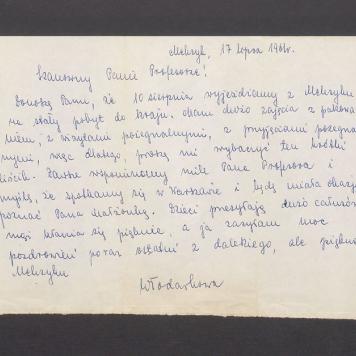 Meksyk, 17 lipca 1961r.
Szanowny Panie Profesorze!
Donoszę Panu, że 10 sierpnia wyjeżdżamy z Meksyku
na stały pobyt do kraju. Mam dużo zajęcia z pakowa
niem, z wizytami pożegnalnymi, z przyjęciami pożegna
nymi, więc dlatego, proszę mi wybaczyć ten krótki
liścik. Zawsze wspominamy mile Pana Profesora i
myślę, że spotkamy się w Warszawie i będę miała okazję
poznać Pana małżonkę. Dzieci przesyłają dużo całusów
mąż kłania się pięknie, a ja zasyłam moc
pozdrowień po raz ostatni z dalekiego, ale pięknego
Meksyku
Włodarkowa